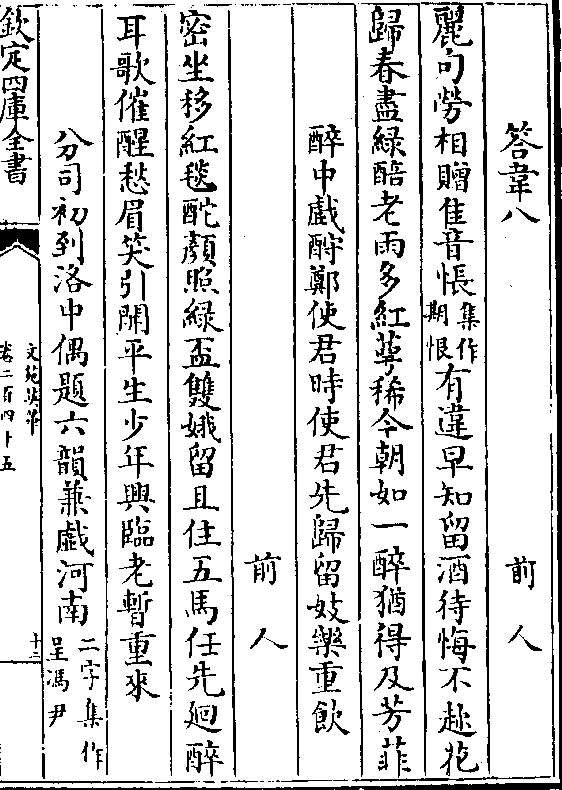 答韋八　前人
麗句勞相贈佳音悵集作期恨有違早知留酒待悔不趂花
歸春盡綠醅老雨多紅萼稀今朝如一醉猶得及芳菲
醉中戲酧鄭使君時使君先歸留妓樂重飲
前人
密坐移紅毯酡顔照綠盃雙娥留且住五馬任先廻醉
耳歌催醒愁眉笑引開平生少年興臨老暫重來
分司初到洛中偶題六韻兼戯河南二字集作呈馮尹
欽定四庫全書
文苑英華
卷二百四十五
十三